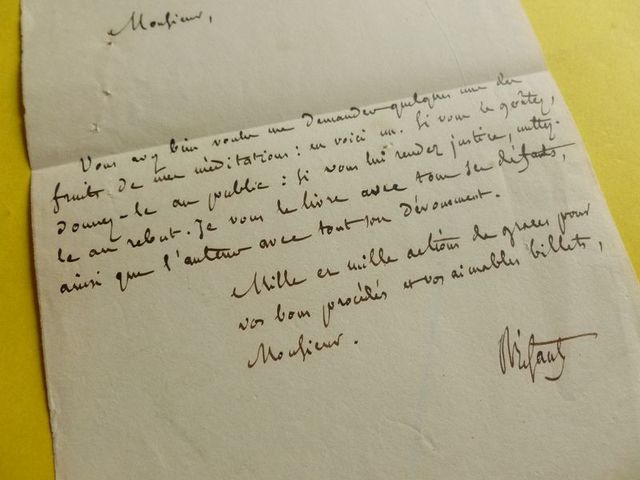 Monsieur,
Vous avez bien voulu me demander quelques uns des
fruits de mes méditations : en voici un. Si vous le goûtez,
donnez-le au public : si vous lui rendez justice, mettez-
le au rebut. Je vous le livre avec tous ses défauts,
ainsi que l'auteur avec tout son dévouement.
Mille et mille actions de graces pour
vos bons procédés et vos aimables billets,
Monsieur.